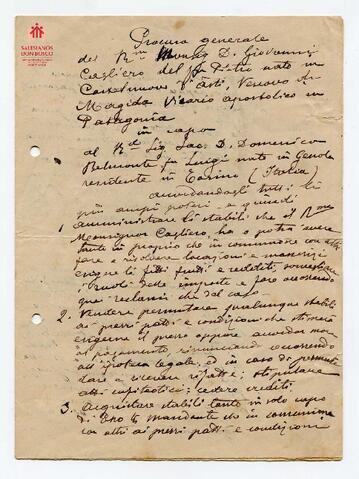 SALESIANOS
DON BOSCO
Procura generale
del Rmo Monsig D. Giovanni
Cagliero del fu Pietro nato in
Castelnuovo d'Asti, Vescovo di
Magida Vicario Apostolico in
Patagonia
in capo
al Rd Sig Sac. D. Domenico
Belmonte fu Luigi nato in Genola
residente in Torino (Italia)
accordandogli tutti i
più ampi poteri e quindi
1. amministrare li stabili che il Rmo
Monsignor Cagliero, ha o potrà avere
tanto in proprio che in comunione con altri
fare e risolvere locazioni e masserizi
esigere li fitti frutti e redditi, sorvegliare
i ruoli delle imposte e fare occorrendo
que' reclami che del caso.
2. Vendere permutare qualunque stabili
ai prezzi patti e condizioni che stimerà
esigerne il prezzo oppure accordar more
al pagamento, rinunciando occorrendo
all'ipoteca legale, ed in caso di permuta
dare o ricevere rifatte; stipulare
atti enfiteotici; cedere crediti.
3. Acquistare stabili tanto in solo capo
di Esso Sig mandante che in comunione
con altri ai prezzi patti e condizioni